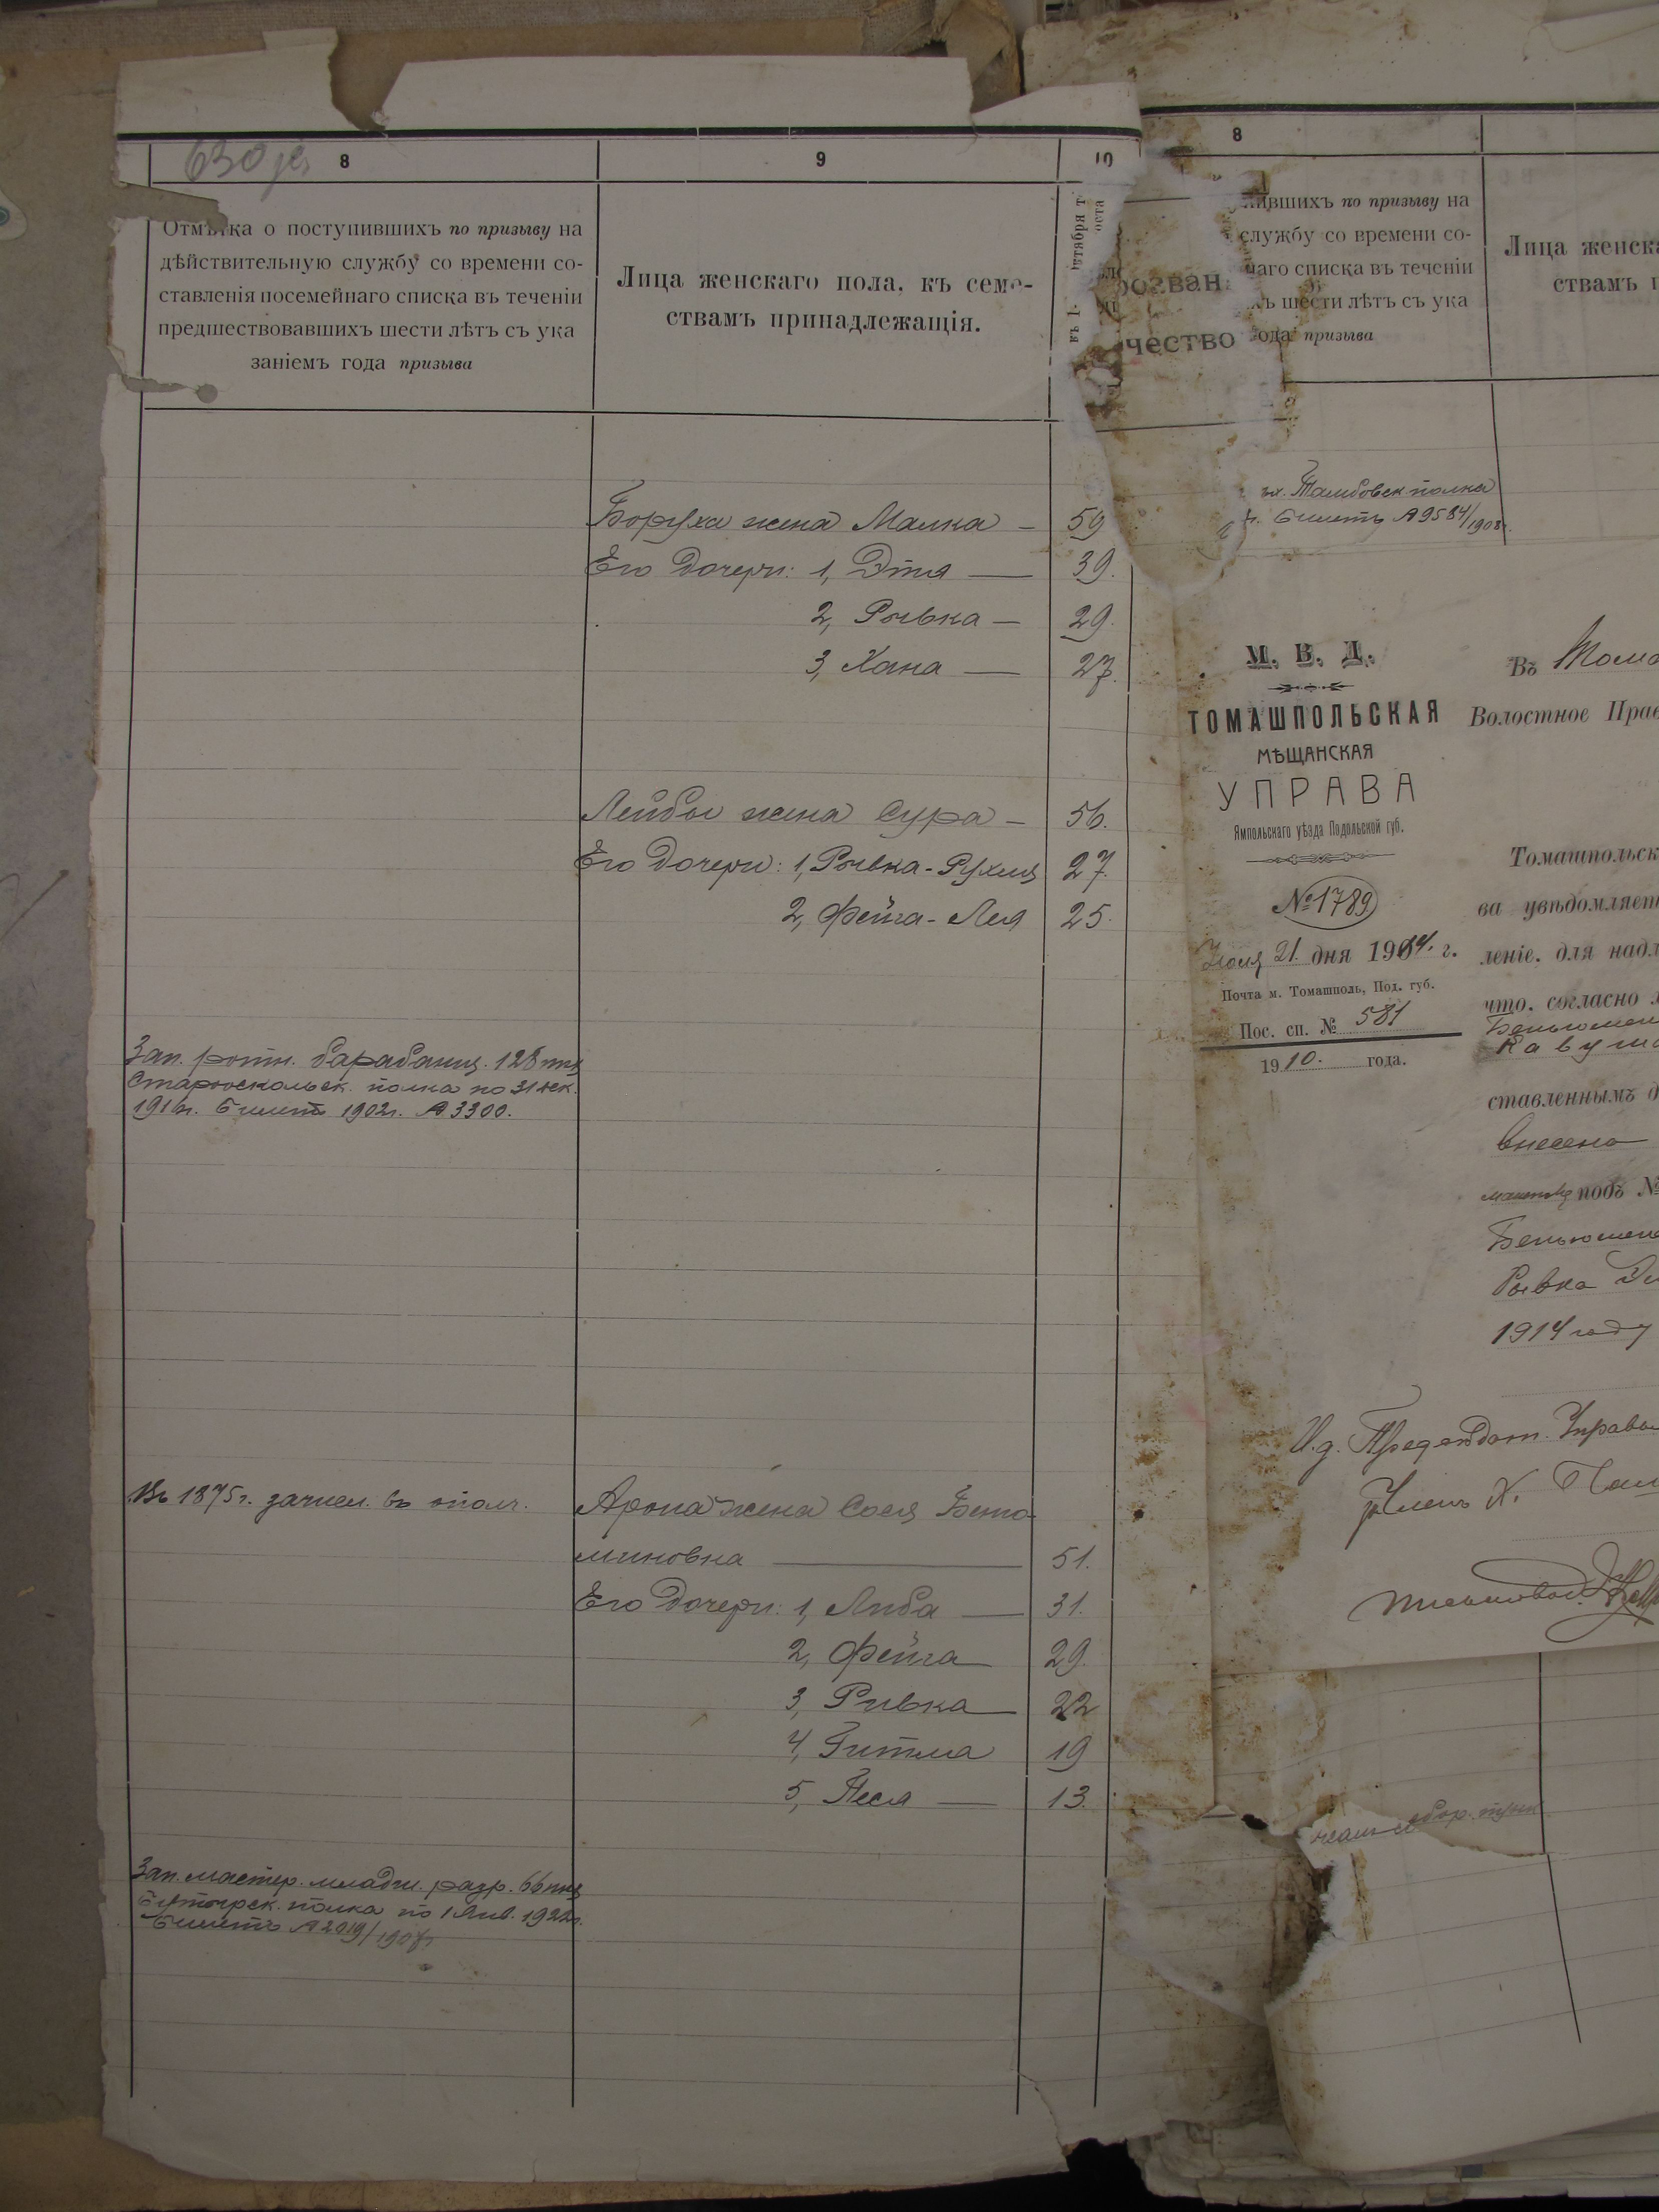 630
8
9
10
Отмѣтка о поступившихъ по призыву на
дѣйствительную службу со времени со-
ставленія посемейнаго списка въ теченіи
предшествовавшихъ шести лѣтъ съ ука
заніемъ года призыва
Лица женскаго пола, къ семе-
ствамъ принадлежащія.
Боруха жена Малка — 59
Его дочери: 1, Этя — 39.
2, Рывка — 29.
3, Хана — 27.
Лейбы жена Сура — 56.
Его дочери: 1, Рывка-Рухля 27.
2, Фейга-Лея 25.
Зап. ротн. барабанщ. 128 пѣх
Старооскольск. полка по 31 дек.
1916г. Билетъ 1902г. № 3300.
Въ 1875г. зачисл. въ ополч.
Арона жена Сося Беню-
миновна — 51.
Его дочери: 1, Либа — 31.
2, Фейга — 29.
3, Ривка — 22
4, Гитля 19
5, Песя — 13.
Зап. мастер. младш. разр. 66 пѣх
Бутырск. полка по 1 Янв. 1922г.
Билетъ № 2019/
8
ившихъ по призыву на
службу со времени со-
наго списка въ теченіи
шести лѣтъ съ ука
года призыва
розван
чество
Лица женска
ствамъ п
Тамбовск полка
Билетъ № 9584/1908г.
М. В. Д.
ТОМАШПОЛЬСКАЯ
МѢЩАНСКАЯ
УПРАВА
Ямпольскаго уѣзда Подольской губ.
№ 1789
Іюля 21 дня 1914. г.
Почта м. Томашполь, Под. губ.
Пос. сп. № 581
1910. года.
Въ Тома
Волостное Прав
Томашпольск
ва увѣдомляет
леніе, для надл
что, согласно
Беньюмен
ставленнымъ д
внесена
подъ №
Беньюмен
Рывка
1914 году
И.д. Предсѣдат. Управы
Членъ Х.
Письмовод.
сбор. пунк